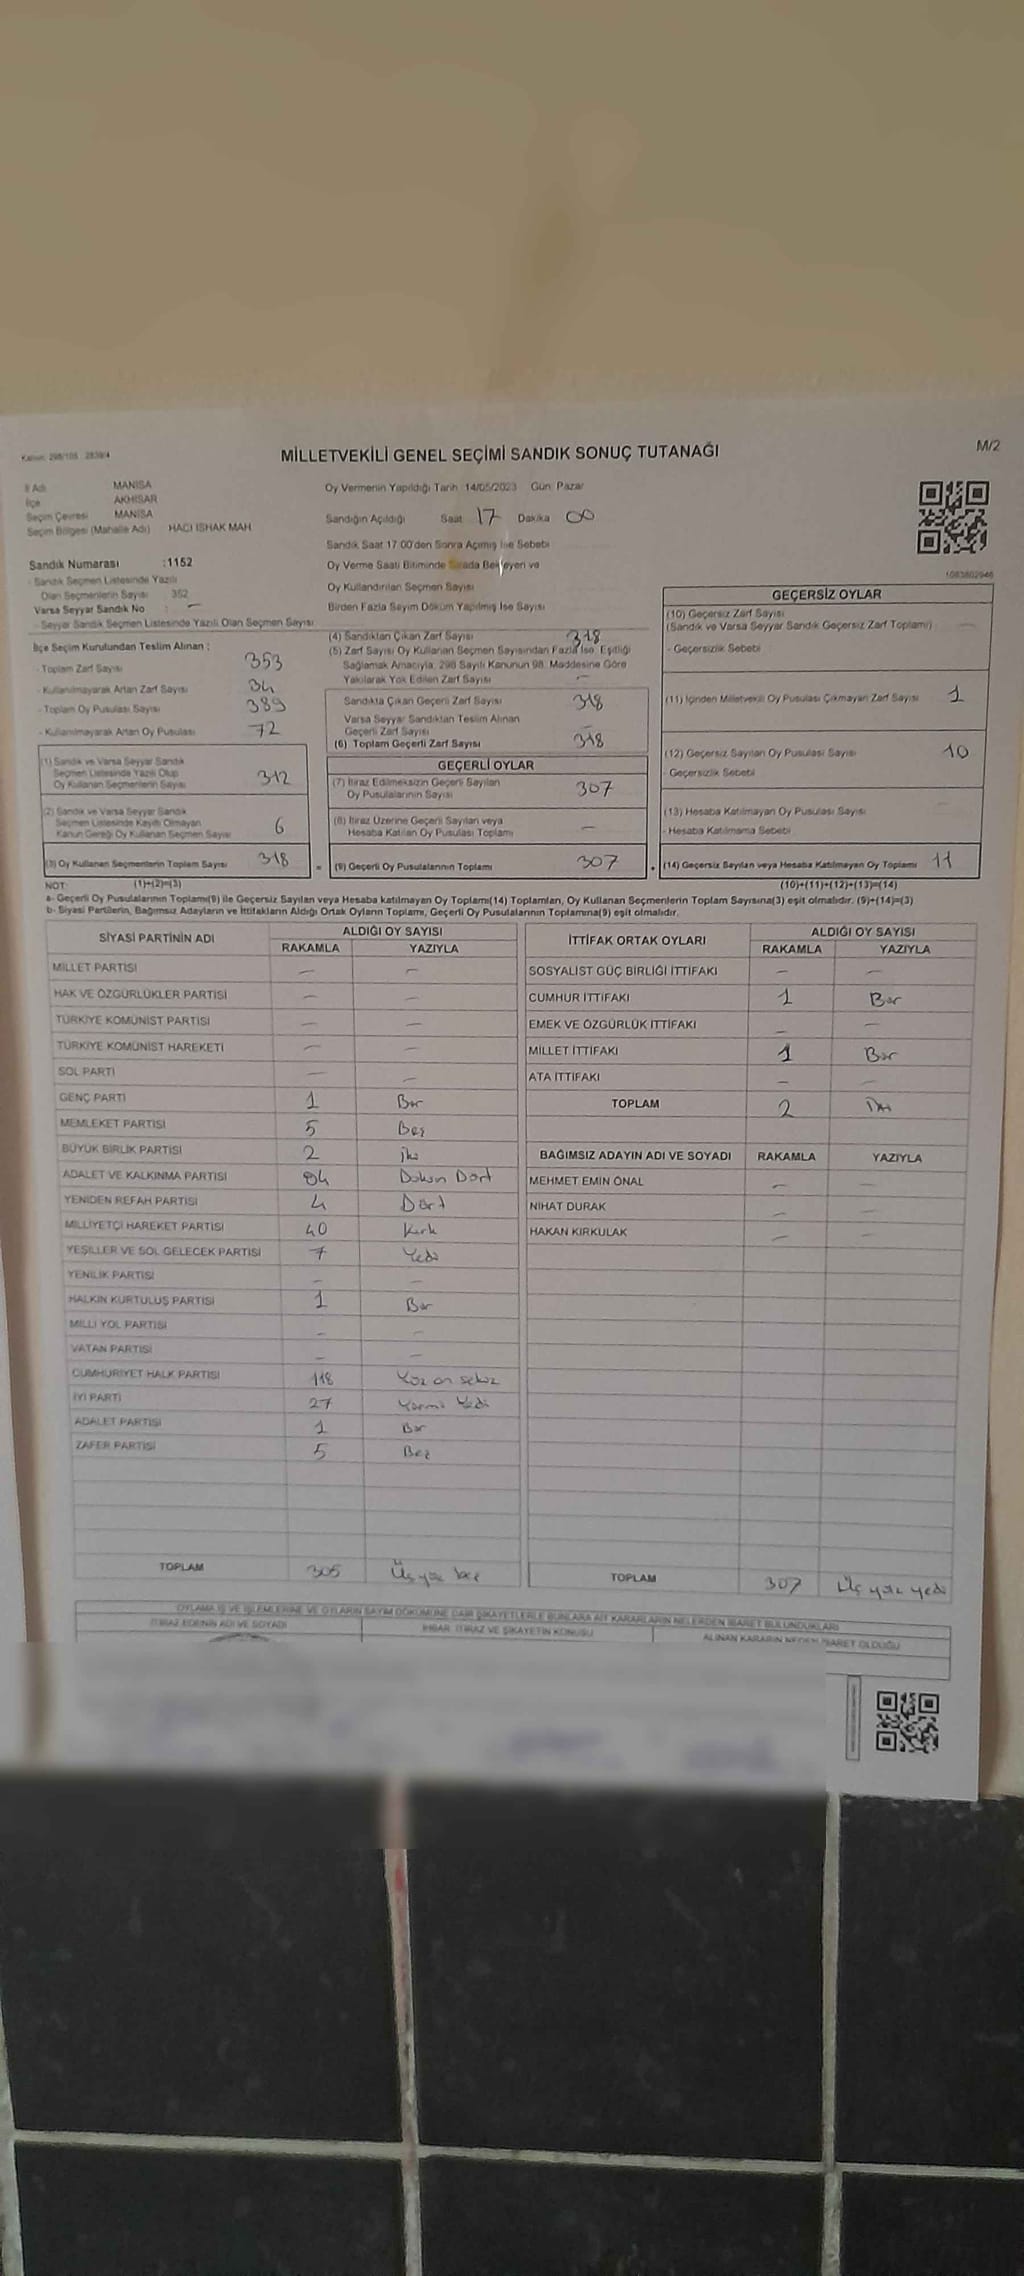 Kanun: 298/105 2839/4
MİLLETVEKİLİ GENEL SEÇİMİ SANDIK SONUÇ TUTANAĞI
M/2
İl Adı MANİSA
İlçe AKHİSAR
Seçim Çevresi MANİSA
Seçim Bölgesi (Mahalle Adı) HACI İSHAK MAH
Sandık Numarası :1152
- Sandık Seçmen Listesinde Yazılı
Olan Seçmenlerin Sayısı 352
Varsa Seyyar Sandık No : —
- Seyyar Sandık Seçmen Listesinde Yazılı Olan Seçmen Sayısı
Oy Vermenin Yapıldığı Tarih 14/05/2023 Gün: Pazar
Sandığın Açıldığı Saat 17 Dakika 00
Sandık Saat 17:00'den Sonra Açılmış İse Sebebi
Oy Verme Saati Bitiminde Sırada Bekleyen ve
Oy Kullandırılan Seçmen Sayısı
Birden Fazla Sayım Döküm Yapılmış İse Sayısı
1083802946
İlçe Seçim Kurulundan Teslim Alınan :
- Toplam Zarf Sayısı 353
- Kullanılmayarak Artan Zarf Sayısı 34
- Toplam Oy Pusulası Sayısı 389
- Kullanılmayarak Artan Oy Pusulası 72
(1) Sandık ve Varsa Seyyar Sandık
Seçmen Listesinde Yazılı Olup
Oy Kullanan Seçmenlerin Sayısı 312
(2) Sandık ve Varsa Seyyar Sandık
Seçmen Listesinde Kayıtlı Olmayan
Kanun Gereği Oy Kullanan Seçmen Sayısı 6
(3) Oy Kullanan Seçmenlerin Toplam Sayısı 318
(4) Sandıktan Çıkan Zarf Sayısı 318
(5) Zarf Sayısı Oy Kullanan Seçmen Sayısından Fazla İse, Eşitliği
Sağlamak Amacıyla, 298 Sayılı Kanunun 98. Maddesine Göre
Yakılarak Yok Edilen Zarf Sayısı —
Sandıkta Çıkan Geçerli Zarf Sayısı 318
Varsa Seyyar Sandıktan Teslim Alınan
Geçerli Zarf Sayısı —
(6) Toplam Geçerli Zarf Sayısı 318
GEÇERLİ OYLAR
(7) İtiraz Edilmeksizin Geçerli Sayılan
Oy Pusulalarının Sayısı 307
(8) İtiraz Üzerine Geçerli Sayılan veya
Hesaba Katılan Oy Pusulası Toplamı —
= (9) Geçerli Oy Pusulalarının Toplamı 307
GEÇERSİZ OYLAR
(10) Geçersiz Zarf Sayısı
(Sandık ve Varsa Seyyar Sandık Geçersiz Zarf Toplamı) —
- Geçersizlik Sebebi
(11) İçinden Milletvekili Oy Pusulası Çıkmayan Zarf Sayısı 1
(12) Geçersiz Sayılan Oy Pusulası Sayısı 10
- Geçersizlik Sebebi
(13) Hesaba Katılmayan Oy Pusulası Sayısı
- Hesaba Katılmama Sebebi
+ (14) Geçersiz Sayılan veya Hesaba Katılmayan Oy Toplamı 11
NOT: (1)+(2)=(3) (10)+(11)+(12)+(13)=(14)
a- Geçerli Oy Pusulalarının Toplamı(9) ile Geçersiz Sayılan veya Hesaba katılmayan Oy Toplamı(14) Toplamları, Oy Kullanan Seçmenlerin Toplam Sayısına(3) eşit olmalıdır. (9)+(14)=(3)
b- Siyasi Partilerin, Bağımsız Adayların ve İttifakların Aldığı Ortak Oyların Toplamı, Geçerli Oy Pusulalarının Toplamına(9) eşit olmalıdır.
SİYASİ PARTİNİN ADI ALDIĞI OY SAYISI
RAKAMLA YAZIYLA
MİLLET PARTİSİ — —
HAK VE ÖZGÜRLÜKLER PARTİSİ — —
TÜRKİYE KOMÜNİST PARTİSİ — —
TÜRKİYE KOMÜNİST HAREKETİ — —
SOL PARTİ — —
GENÇ PARTİ 1 Bir
MEMLEKET PARTİSİ 5 Beş
BÜYÜK BİRLİK PARTİSİ 2 iki
ADALET VE KALKINMA PARTİSİ 94 Doksan Dört
YENİDEN REFAH PARTİSİ 4 Dört
MİLLİYETÇİ HAREKET PARTİSİ 40 Kırk
YEŞİLLER VE SOL GELECEK PARTİSİ 7 Yedi
YENİLİK PARTİSİ — —
HALKIN KURTULUŞ PARTİSİ 1 Bir
MİLLİ YOL PARTİSİ — —
VATAN PARTİSİ — —
CUMHURİYET HALK PARTİSİ 118 Yüz on sekiz
İYİ PARTİ 27 Yirmi Yedi
ADALET PARTİSİ 1 Bir
ZAFER PARTİSİ 5 Beş
TOPLAM 305 Üç yüz beş
İTTİFAK ORTAK OYLARI ALDIĞI OY SAYISI
RAKAMLA YAZIYLA
SOSYALİST GÜÇ BİRLİĞİ İTTİFAKI — —
CUMHUR İTTİFAKI 1 Bir
EMEK VE ÖZGÜRLÜK İTTİFAKI — —
MİLLET İTTİFAKI 1 Bir
ATA İTTİFAKI — —
TOPLAM 2 İki
BAĞIMSIZ ADAYIN ADI VE SOYADI RAKAMLA YAZIYLA
MEHMET EMİN ÖNAL — —
NİHAT DURAK — —
HAKAN KIRKULAK — —
TOPLAM 307 Üç yüz yedi
OYLAMA İŞ VE İŞLEMLERİNE VE OYLARIN SAYIM DÖKÜMÜNE DAİR ŞİKAYETLERLE BUNLARA AİT KARARLARIN NELERDEN İBARET BULUNDUKLARI
İTİRAZ EDENİN ADI VE SOYADI
İHBAR, İTİRAZ VE ŞİKAYETİN KONUSU
ALINAN KARARIN NEDEN İBARET OLDUĞU